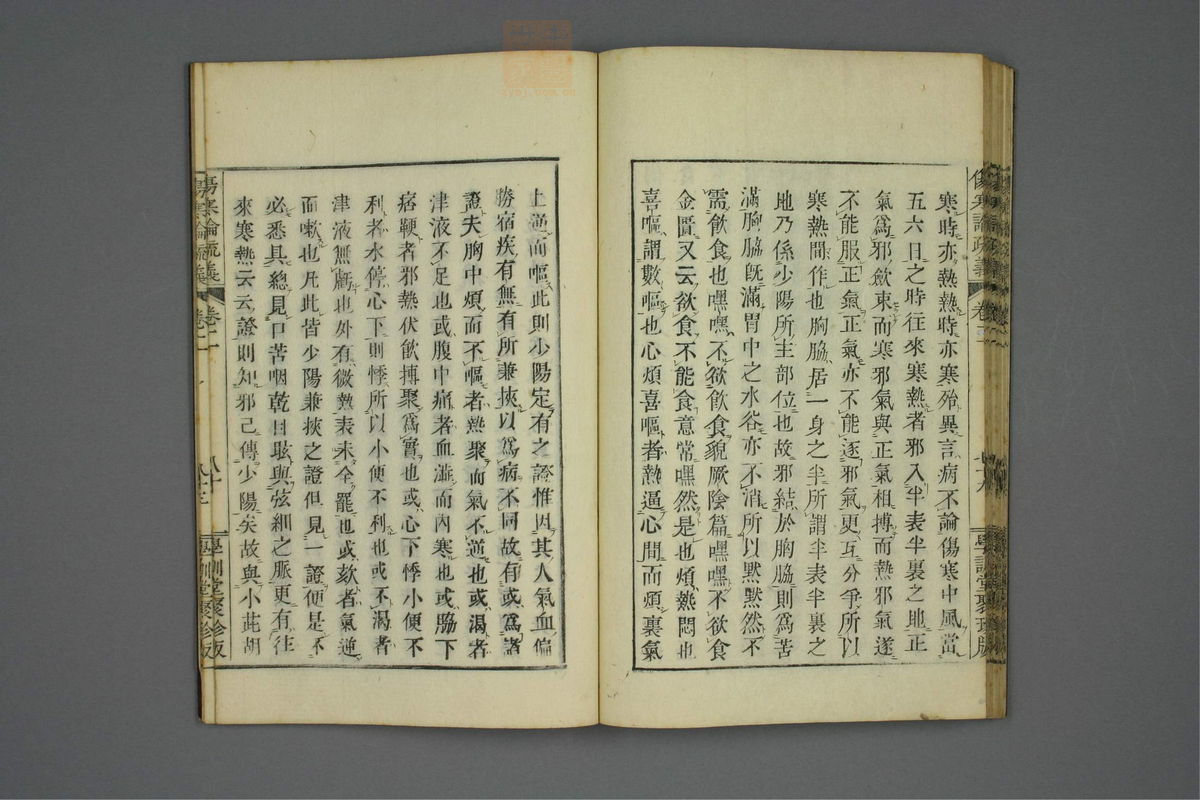 寒時亦熱熱時亦寒殆異言病不論傷寒中風當
五六日之時往來寒熱者邪入半表半裏之地正
氣爲邪斂束而寒邪氣與正氣相搏而熱邪氣遂
不能服正氣正氣亦不能逐邪氣更互分爭所以
寒熱間作也胸脇居一身之半所謂半表半裏之
地乃係少陽所主部位也故邪結於胸脇則爲苦
滿胸脇既滿胃中之水谷亦不消所以默默然不
需飲食也嘿嘿不欲飲食貌厥陰篇嘿嘿不欲食
金匱又云欲食不能食意常嘿然是也煩熱悶也
喜嘔謂數嘔也心煩喜嘔者熱逼心間而煩裏氣
上逆而嘔此則少陽定有之證惟因其人氣血偏
勝宿疾有無有所兼挾以爲病不同故有或爲諸
證夫胸中煩而不嘔者熱聚而氣不逆也或渴者
津液不足也或腹中痛者血澁而內寒也或脇下
痞鞕者邪熱伏飲搏聚爲實也或心下悸小便不
利者水停心下則悸所以小便不利也或不渴者
津液無虧也外有微熱表未全罷也或欬者氣逆
而嗽也凡此皆少陽兼挾之證但見一證便是不
必悉具總見口苦咽乾目眩與弦細之脈更有往
來寒熱云云證則知邪已傳少陽矣故與小此胡
傷寒論疏義
卷二
學訓堂聚珍版